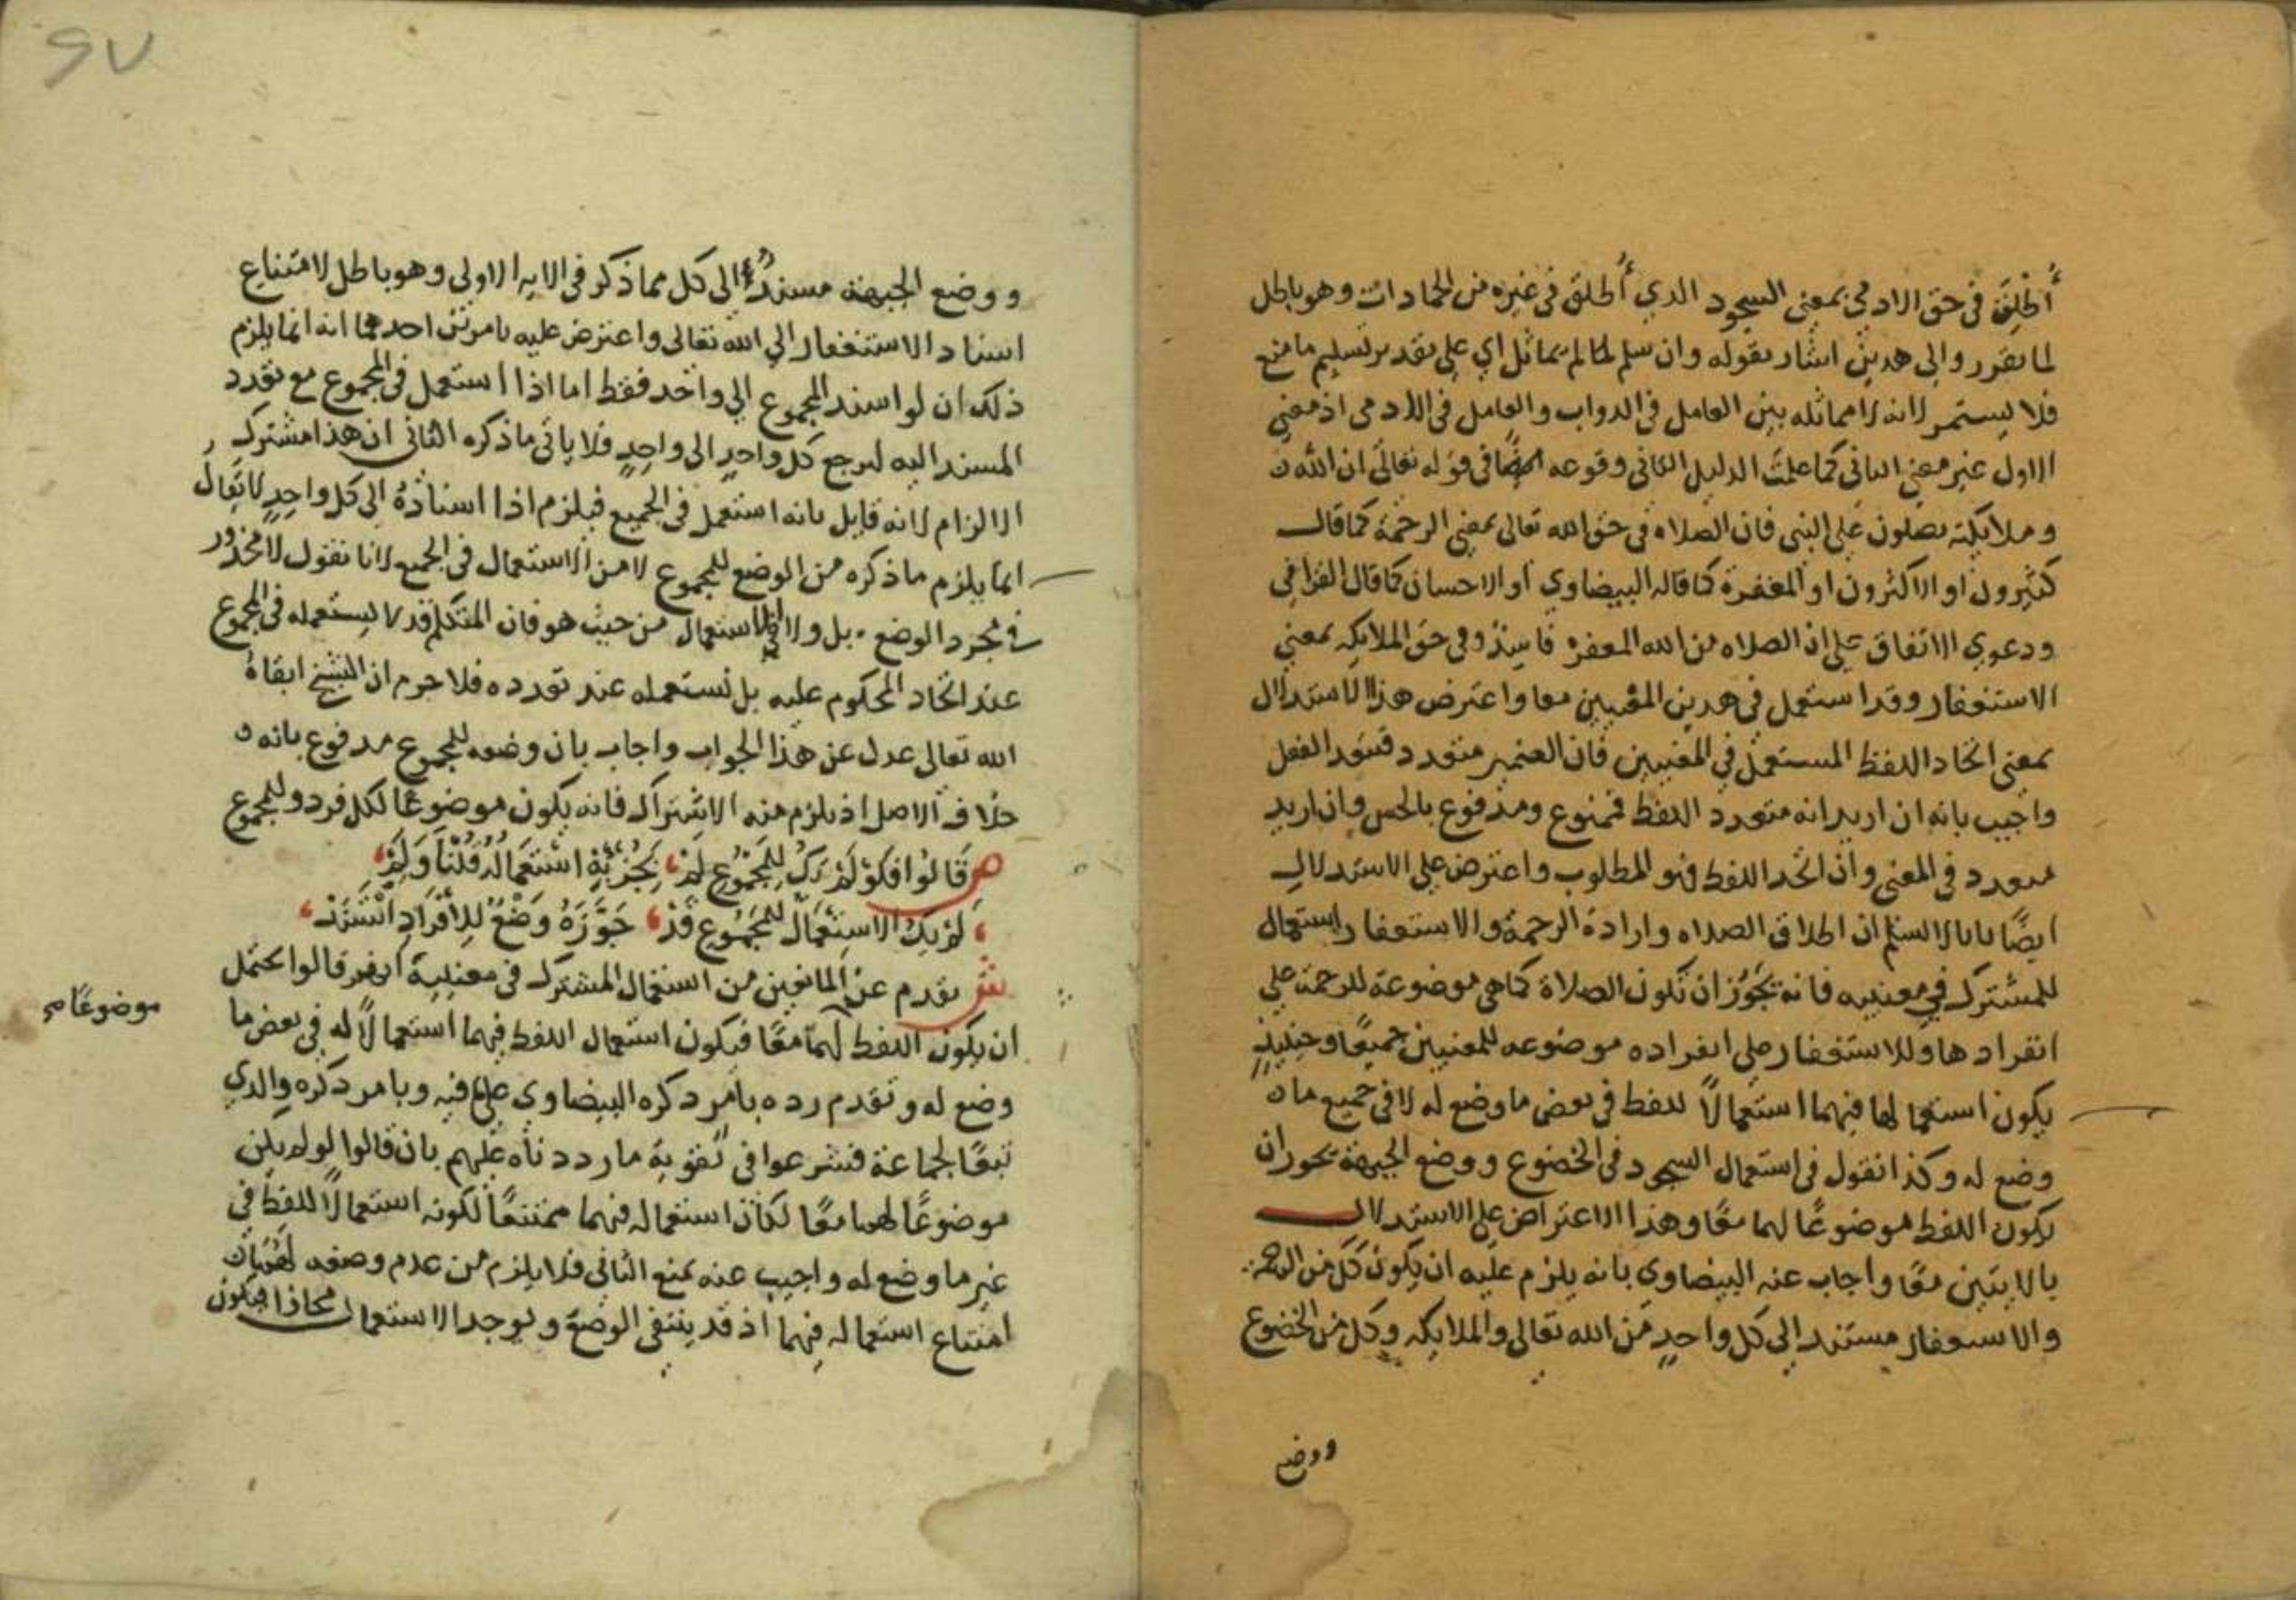 أُطْلِقَ في حق الادمي بمعني السجود الدي أُطلق في غيره من الجمادات وهو باطل
لما تقرر والي هدين اشار بقوله وان سلم لما لم يماثل اي علي تقدير تسليم ما منع
فلا يستمر لانه لا مماثله بين العامل في الدواب والعامل في الادمي اذ معني
الاول غير معني الثاني كما علمت الدليل الثاني وقوعه ايضًا في قوله تعالى ان الله
وملايكته يصلون علي النبي فان الصلاه في حق الله تعالى بمعني الرحمة كما قال
كثيرون او الاكثرون او المغفرة كما قاله البيضاوي او الاحسان كما قال القرافي
ودعوي الاتفاق علي ان الصلاه من الله المغفره فاسد وفي حق الملايكه بمعني
الاستغفار وقد استعمل في هدين المعنيين معا واعترض هذا الاستدلال
بمعني اتحاد اللفظ المستعمل في المعنيين فان الضمير متعدد فتعدد الفعل
واجيب بانه ان اريد انه متعدد اللفظ فممنوع ومدفوع بالحس وان اريد
تعدد في المعني وان اتحد اللفظ فهو المطلوب واعترض علي الاستدلال
ايضًا بانا لا نسلم ان اطلاق الصلاه وارادة الرحمة والاستغفار استعمال
للمشترك في معنييه فانه يجوز ان تكون الصلاة كما هي موضوعة للرحمة علي
انفرادها وللاستغفار علي انفراده موضوعه للمعنيين جميعًا وحينيذٍ
يكون استعمالها فيهما استعمالاً للفظ في بعض ما وضع له لا في جميع ما
وضع له وكذا نقول في استعمال السجود في الخضوع ووضع الجبهة يجوز ان
يكون اللفظ موضوعًا لهما معًا وهذا الاعتراض علي الاستدلال
بالايتين معًا واجاب عنه البيضاوي بانه يلزم عليه ان يكون كل من الرحمة
والاستغفار مستند الي كل واحدٍ من الله تعالى والملايكه وكل من الخضوع
ووضع
ووضع الجبهة مسندٌ الى كل مما ذكر في الايه الاولى وهو باطل لامتناع
اسناد الاستغفار الي الله تعالى واعترض عليه بامرين احدهما انه انما يلزم
ذلك ان لو اسند المجموع الي واحد فقط اما اذا استعمل في المجموع مع تعدد
المسند اليه ليرجع كل واحدٍ الى واحدٍ فلا ياتي ماذكره الثاني ان هذا مشترك
الالزام لانه قايل بانه استعمل في الجميع فيلزم اذا اسنادهُ الى كل واحدٍ لا يقال
انما يلزم ماذكره من الوضع للمجموع لا من الاستعمال في الجميع لانا نقول لا محذور
في مجرد الوضع بل ولا في الاستعمال من حيث هو فان المتكلم قد لا يستعمله في المجموع
عند اتحاد المحكوم عليه بل يستعمله عند تعدده فلا جرم ان الشيخ ابقاهُ
الله تعالى عدل عن هذا الجواب واجاب بان وضعه للمجموع مدفوع بانه
خلاف الاصل اذ يلزم منه الاشتراك فانه يكون موضوعًا لكل فرد وللمجموع
ص قَالُوا فَلَوْ لَمْ يَكُ لِلْمَجْمُوعِ لَمْ يُجْزِئْهُ اسْتِعْمَالُهُ قُلْنَا وَلِمْ
لَمْ يَكُ الاسْتِعْمَالُ لِلْمَجْمُوعِ قَدْ جَوَّزَهُ وَضْعٌ لِلأَفْرَادِ انْفَرَدْ
ش تقدم عن المانعين من استعمال المشترك في معنييه انهم قالوا يحتمل
ان يكون اللفظ لهما معًا فيكون استعمال اللفظ فيهما استعمالاً له في بعض ما
موضوعًا
وضع له وتقدم رده بامر ذكره البيضاوي علي ما فيه وبامر ذكره والدي
تبعًا لجماعة فشرعوا في تقوية ما رددناه عليهم بان قالوا لو لم يكن
موضوعًا لهما معًا لكان استعماله فيهما ممتنعًا لكونه استعمالاً للفظ في
غير ما وضع له واجيب عنه بمنع الثاني فلا يلزم من عدم وضعه لهما
امتناع استعماله فيهما اذ قد ينتفي الوضع ويوجد الاستعمال مجازا فيكون